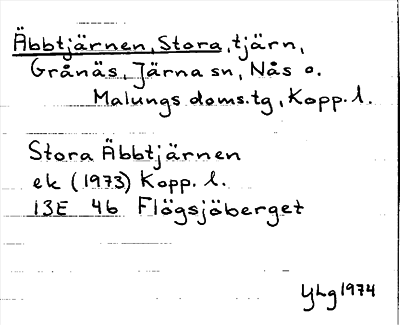 Äbbtjärnen, Stora, tjärn,
Grånäs, Järna sn, Nås o.
Malungs doms.tg, Kopp. l.
Stora Äbbtjärnen
ek (1973) Kopp. l.
13E 4b Flögsjöberget
YLg 1974